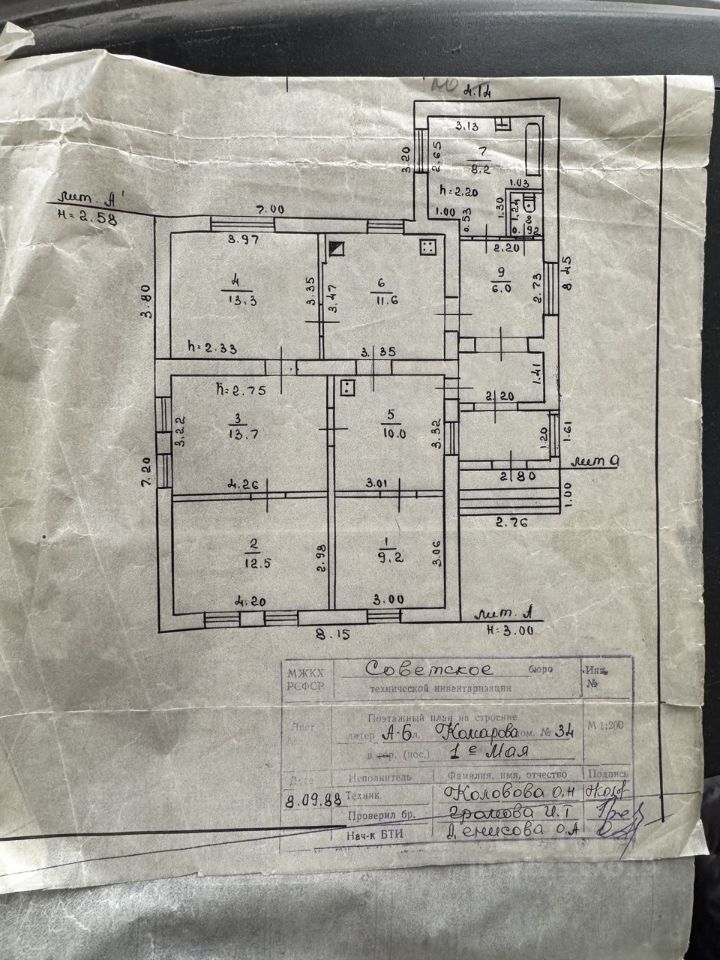 4.14
3.13
7
8.2
3.20
2.65
h=2.20
1.03
1.30
1.24
1.00
0.53
0.92
лит. А'
H=2.58
7.00
3.97
2.20
9
6.0
2.73
8.45
4
13.3
3.35
3.47
6
11.6
3.80
h=2.33
3.35
1.41
h=2.75
2.20
3
13.7
3.22
5
10.0
3.32
1.20
1.61
7.20
4.26
3.01
2.80
лит а
1.00
2.76
2
12.5
2.98
1
9.2
3.06
4.20
3.00
8.15
лит. А
H=3.00
МЖКХ РСФСР
Советское бюро
технической инвентаризации
Инв. №
Лист №
Поэтажный план на строение
литер А-Б ул. Комарова дом. № 34
М 1:200
в гор. (пос.) 1е Мая
Дата Исполнитель Фамилия, имя, отчество Подпись
8.09.88 Техник Коловова О.Н
Проверил бр. Громова И.Т
Нач-к БТИ Денисова О.А